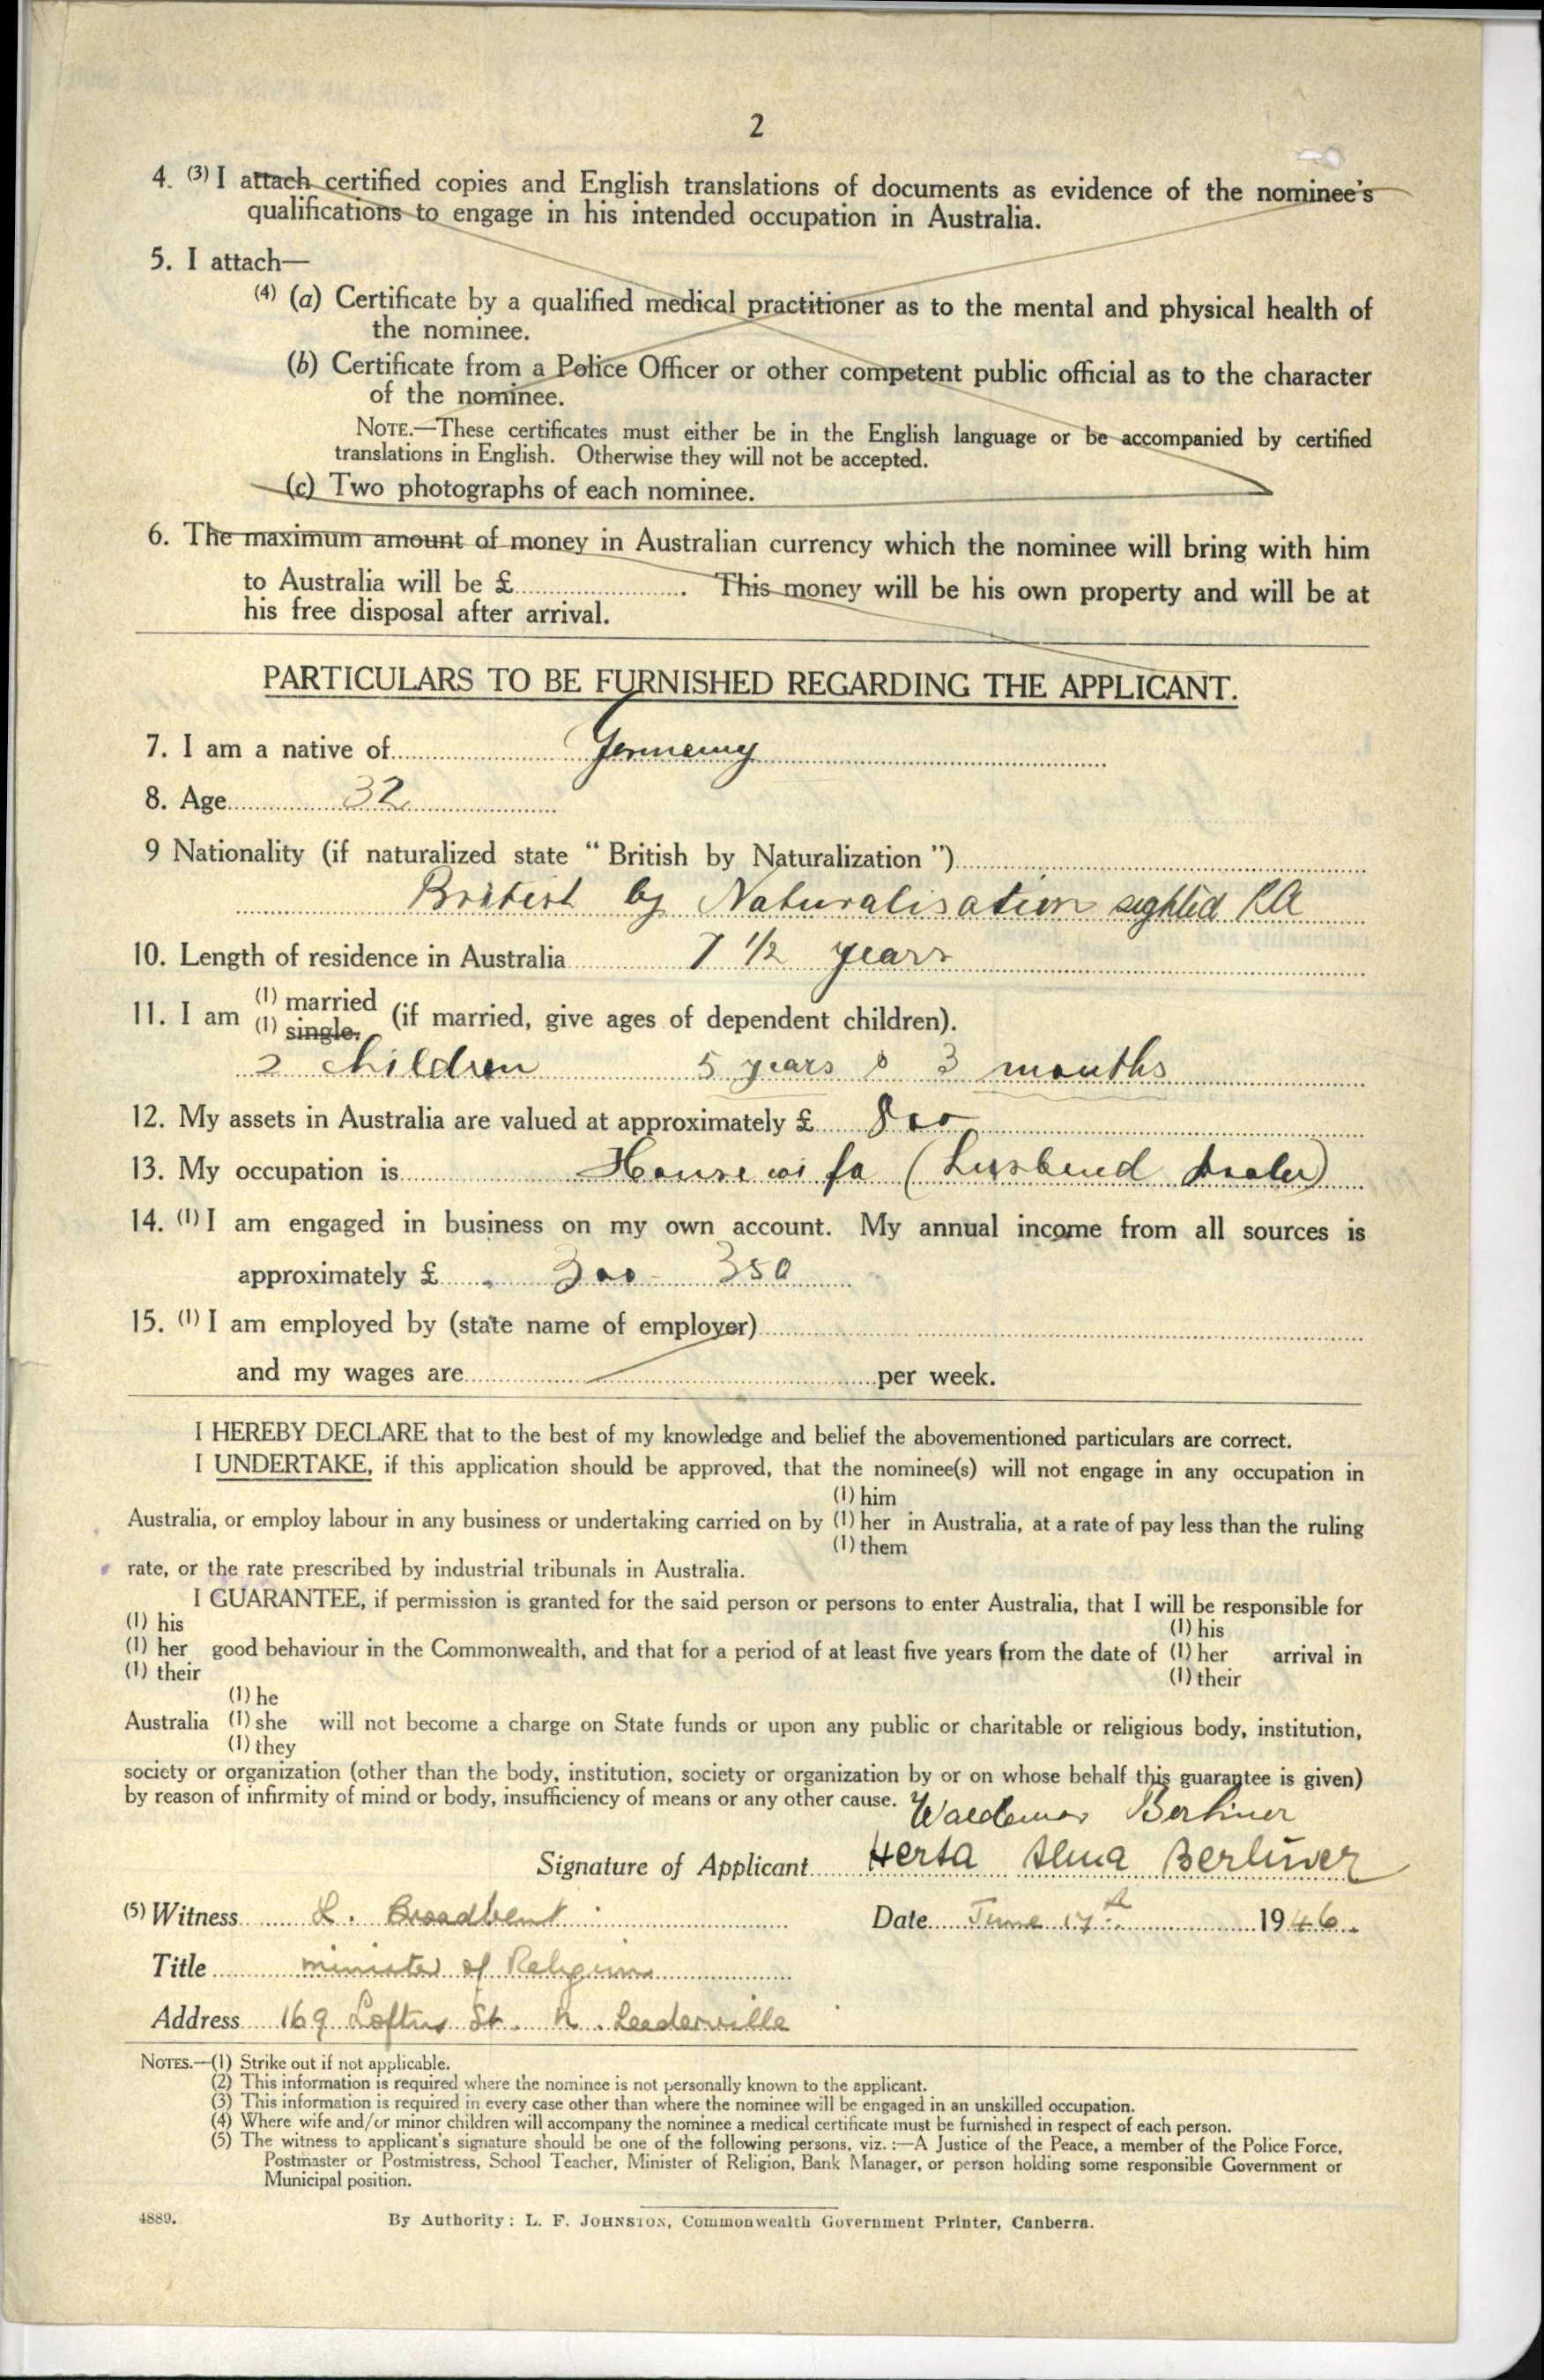 2
4. (3) I attach certified copies and English translations of documents as evidence of the nominee's
qualifications to engage in his intended occupation in Australia.
5. I attach—
(4) (a) Certificate by a qualified medical practitioner as to the mental and physical health of
the nominee.
(b) Certificate from a Police Officer or other competent public official as to the character
of the nominee.
NOTE.—These certificates must either be in the English language or be accompanied by certified
translations in English. Otherwise they will not be accepted.
(c) Two photographs of each nominee.
6. The maximum amount of money in Australian currency which the nominee will bring with him
to Australia will be £.................... This money will be his own property and will be at
his free disposal after arrival.
PARTICULARS TO BE FURNISHED REGARDING THE APPLICANT.
7. I am a native of Germany
8. Age 32
9 Nationality (if naturalized state "British by Naturalization")
British by Naturalisation sighted
10. Length of residence in Australia 7 1/2 years
11. I am (1) married
(1) single. (if married, give ages of dependent children).
2 children 5 years & 3 months
12. My assets in Australia are valued at approximately £ 800
13. My occupation is Housewife (husband dealer)
14. (1) I am engaged in business on my own account. My annual income from all sources is
approximately £ 300 - 350
15. (1) I am employed by (state name of employer)
and my wages are per week.
I HEREBY DECLARE that to the best of my knowledge and belief the abovementioned particulars are correct.
I UNDERTAKE, if this application should be approved, that the nominee(s) will not engage in any occupation in
(1) him
Australia, or employ labour in any business or undertaking carried on by (1) her in Australia, at a rate of pay less than the ruling
(1) them
rate, or the rate prescribed by industrial tribunals in Australia.
I GUARANTEE, if permission is granted for the said person or persons to enter Australia, that I will be responsible for
(1) his (1) his
(1) her good behaviour in the Commonwealth, and that for a period of at least five years from the date of (1) her arrival in
(1) their (1) their
(1) he
Australia (1) she will not become a charge on State funds or upon any public or charitable or religious body, institution,
(1) they
society or organization (other than the body, institution, society or organization by or on whose behalf this guarantee is given)
by reason of infirmity of mind or body, insufficiency of means or any other cause.
Waldemar Berliner
Signature of Applicant Herta Alma Berliner
(5) Witness L. Broadbent Date June 17th 1946.
Title Minister of Religion
Address 169 Loftus St. N. Leederville
NOTES.—(1) Strike out if not applicable.
(2) This information is required where the nominee is not personally known to the applicant.
(3) This information is required in every case other than where the nominee will be engaged in an unskilled occupation.
(4) Where wife and/or minor children will accompany the nominee a medical certificate must be furnished in respect of each person.
(5) The witness to applicant's signature should be one of the following persons, viz.:—A Justice of the Peace, a member of the Police Force,
Postmaster or Postmistress, School Teacher, Minister of Religion, Bank Manager, or person holding some responsible Government or
Municipal position.
4889. By Authority: L. F. JOHNSTON, Commonwealth Government Printer, Canberra.